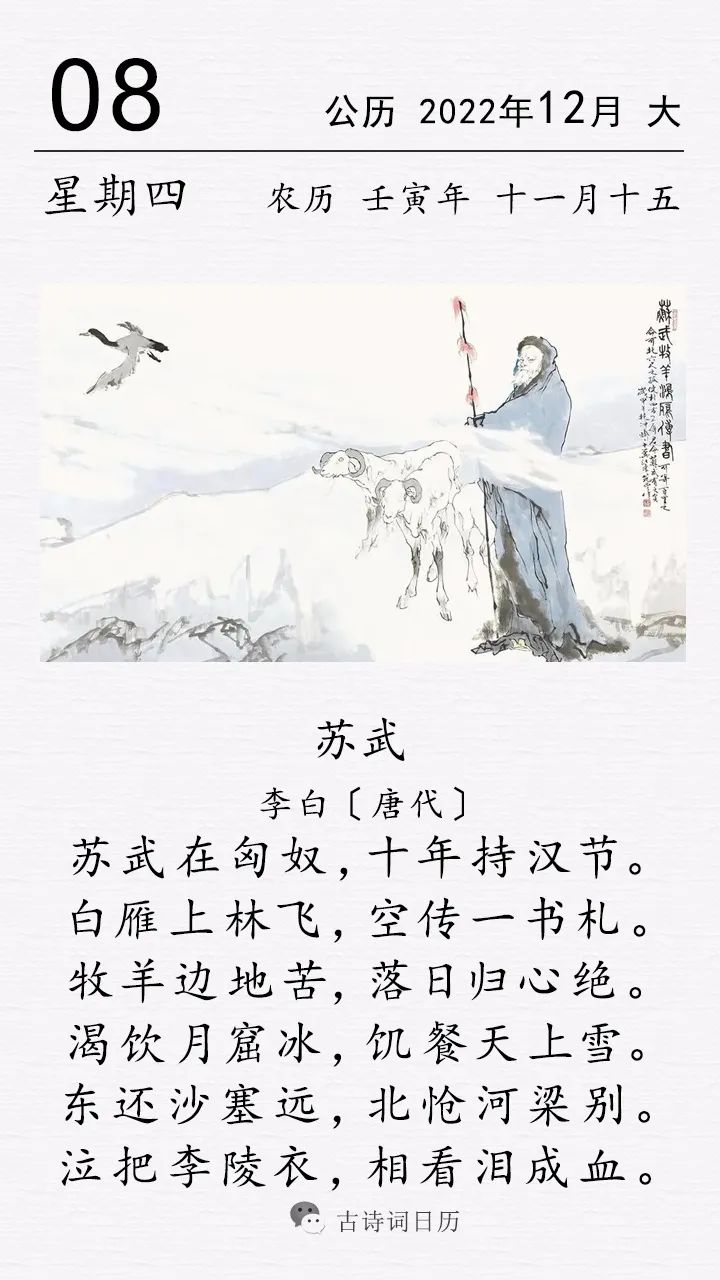 08
公历 2022年12月 大
星期四 农历 壬寅年 十一月十五
苏武
李白〔唐代〕
苏武在匈奴,十年持汉节。
白雁上林飞,空传一书札。
牧羊边地苦,落日归心绝。
渴饮月窟冰,饥餐天上雪。
东还沙塞远,北怆河梁别。
泣把李陵衣,相看泪成血。
古诗词日历